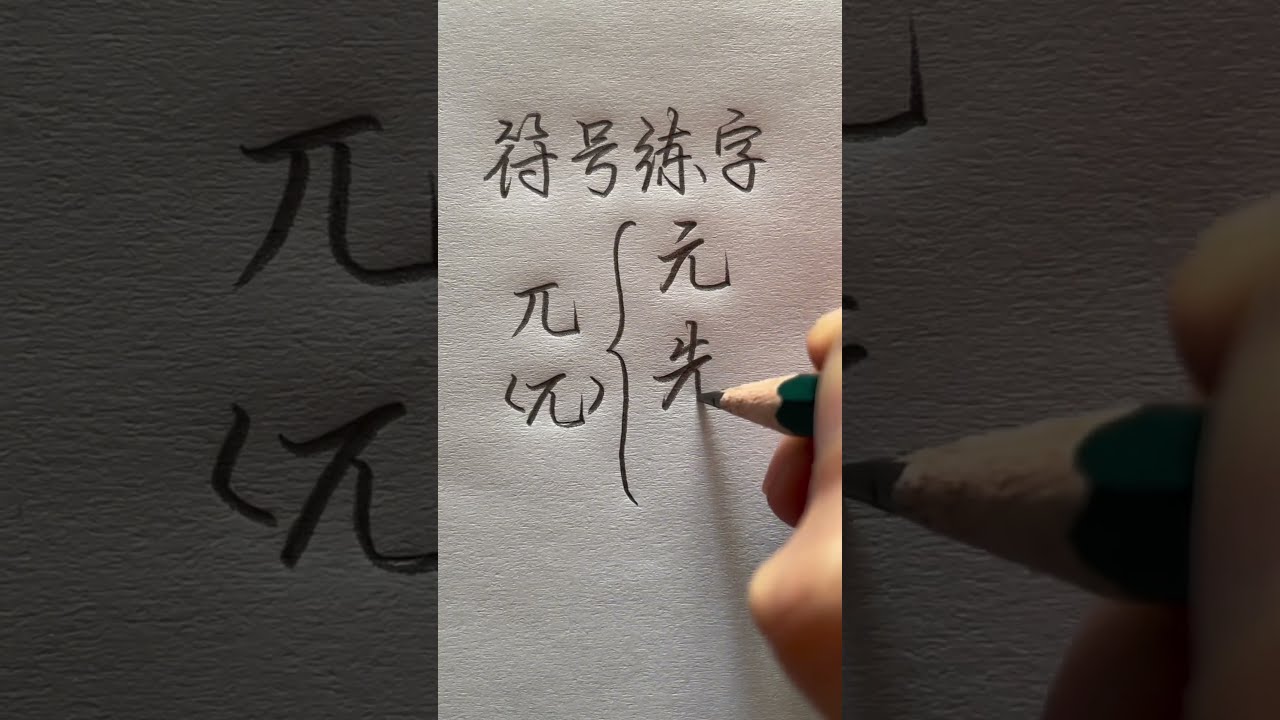 符号练字
兀
〈兀〉
元
先